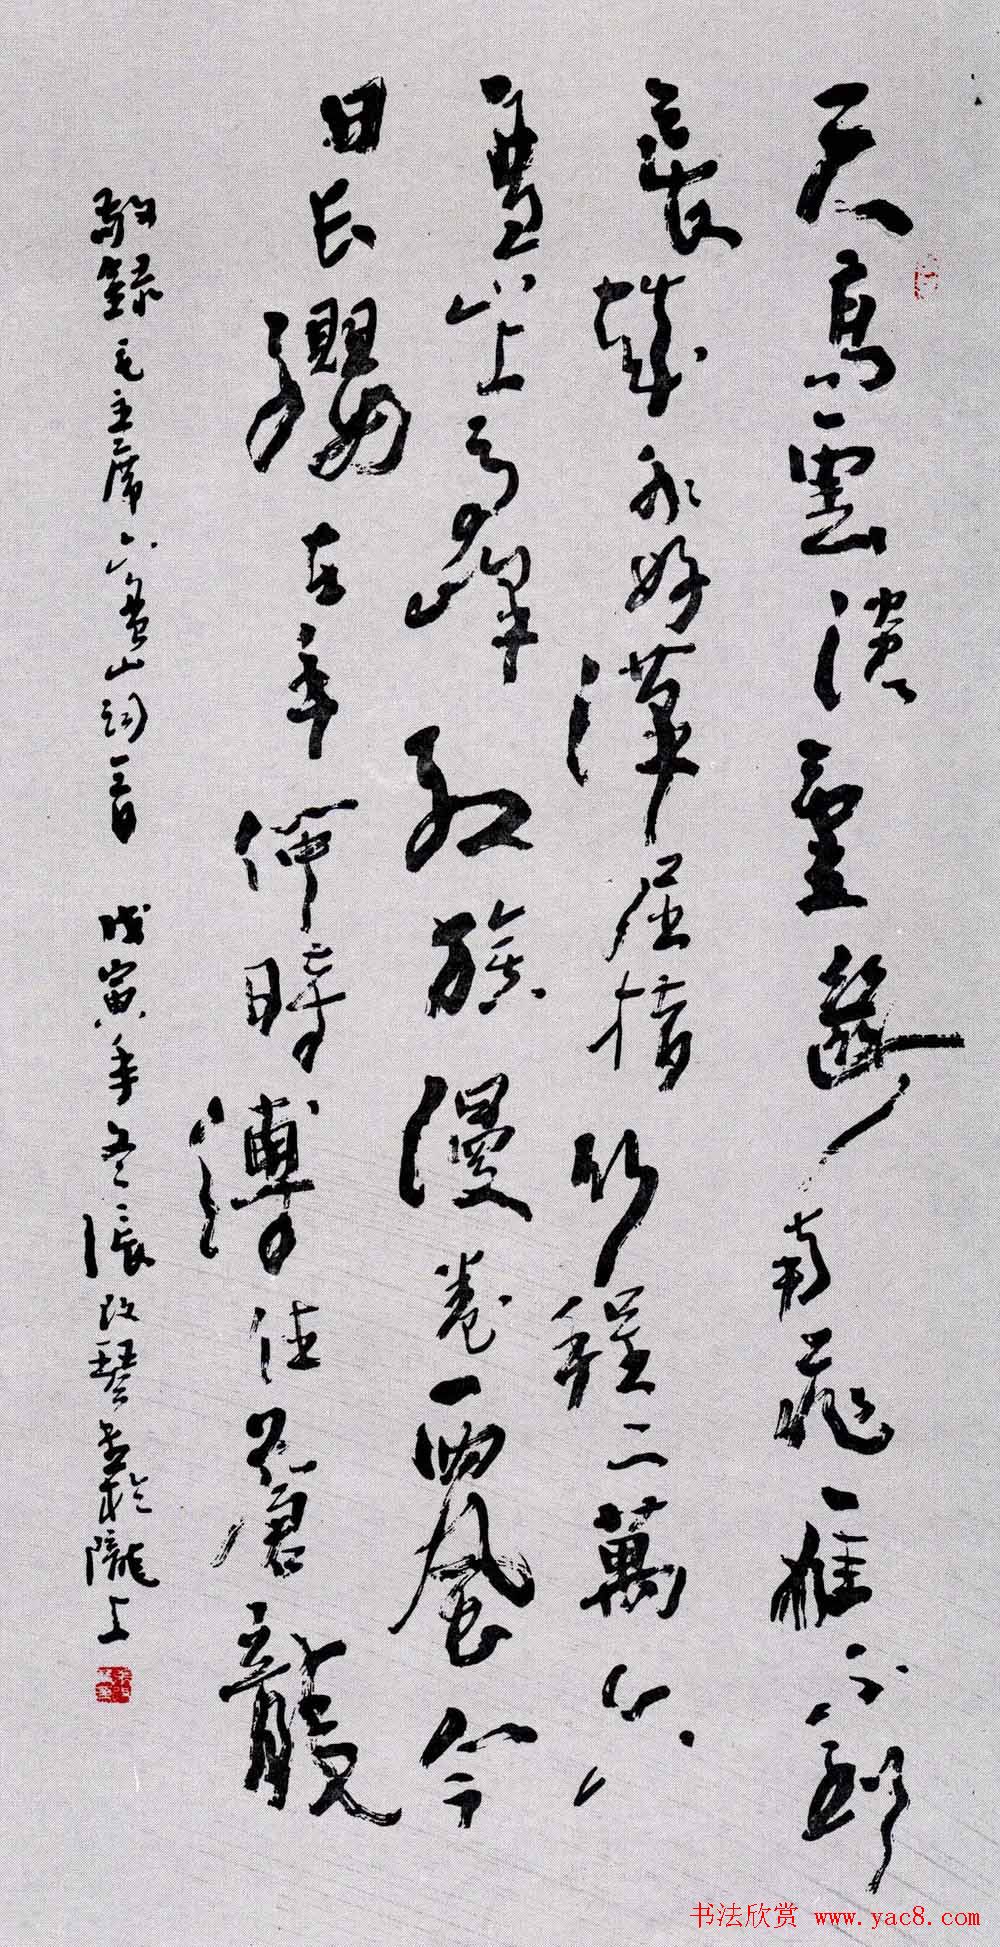 天高雲淡望斷南飛雁不到
長城非好漢屈指行程二萬六
盤山上高峰紅旗漫卷西風今
日長纓在手何時縛住蒼龍
敬錄毛主席六盤山詞一首 戊寅年冬張改琴書於隴上
书法欣赏 www.yac8.com